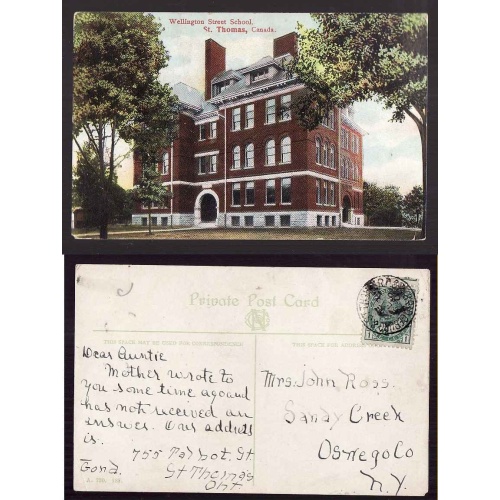 Wellington Street School.
St. Thomas, Canada.
Private Post Card
THIS SPACE MAY BE USED FOR CORRESPONDENCE
THIS SPACE FOR ADDRESS
Dear Auntie
Mother wrote to
you some time ago and
has not received an
answer. Our address
is.
755 Talbot St
St Thomas
Ont.
Mrs. John Ross.
Sandy Creek
Oswego Co
N.Y.